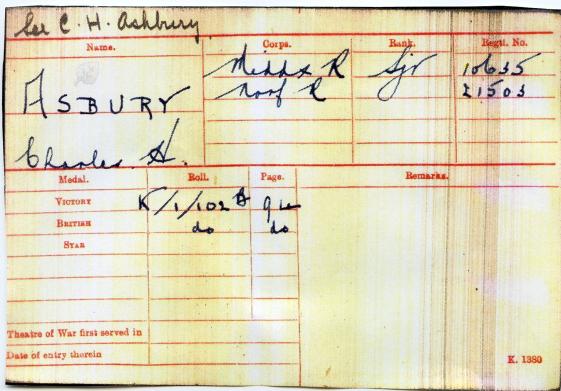 See C. H. Ashbury
Name. Corps. Rank. Regtl. No.
Middx R Sjt 10635
Norf R 21503
ASBURY
Charles H.
Medal. Roll. Page. Remarks.
VICTORY K/1/102 B
BRITISH do do
STAR
Theatre of War first served in
Date of entry therein K. 1380